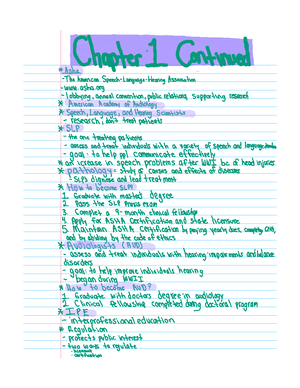 Chapter 1 Continued
* Asha
- The American Speech-Language-Hearing Association
- www.asha.org
- lobbying, annual convention, public relations, supporting research
* American Academy of Audiology
* Speech, Language, and Hearing Scientists
- research, don't treat patients
* SLP
- the one treating patients
- assess and treat individuals with a variety of speech and language disorders
- goal: to help ppl communicate effectively
* an increase in speech problems after WWII bc of head injuries
* pathology - study of causes and effects of diseases
- SLPs diagnose and lead treatment
* How to become SLP?
1. Graduate with masters degree
2. Pass the SLP Praxis exam
3. Complete a 9-month clinical fellowship
4. Apply for ASHA Certification and state licensure
5. Maintain ASHA Certification by paying yearly dues, complete CEUs,
and by abiding by the code of ethics
* Audiologists (AuD)
- assess and treat individuals with hearing impairments and balance
disorders
- goal: to help improve individuals hearing
- began during WWII
* How to become AuD?
1. Graduate with doctors degree in audiology
2. Clinical fellowship completed during doctoral program
* IPE
- interprofessional education
* Regulation
- protects public interest
- two ways to regulate
- licensure
- certification